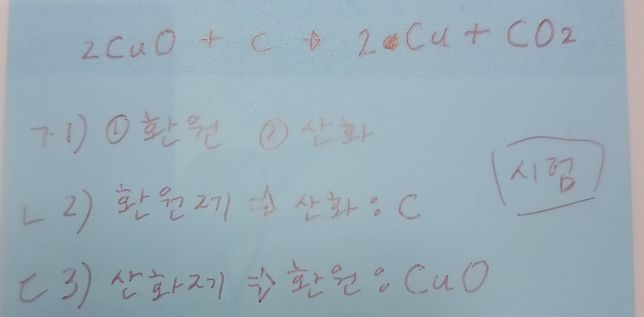 2CuO + C → 2Cu + CO2
ㄱ1) ① 환원 ② 산화
시험
ㄴ2) 환원제 ⇒ 산화 : C
ㄷ3) 산화제 ⇒ 환원 : CuO